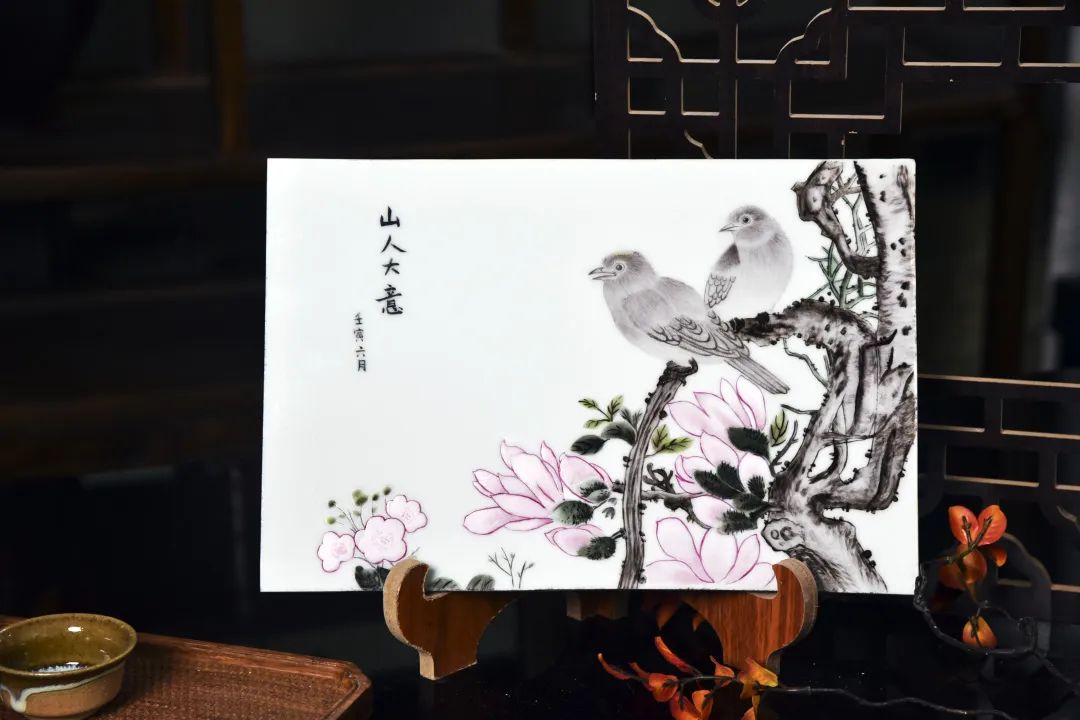 山人大意
壬寅六月